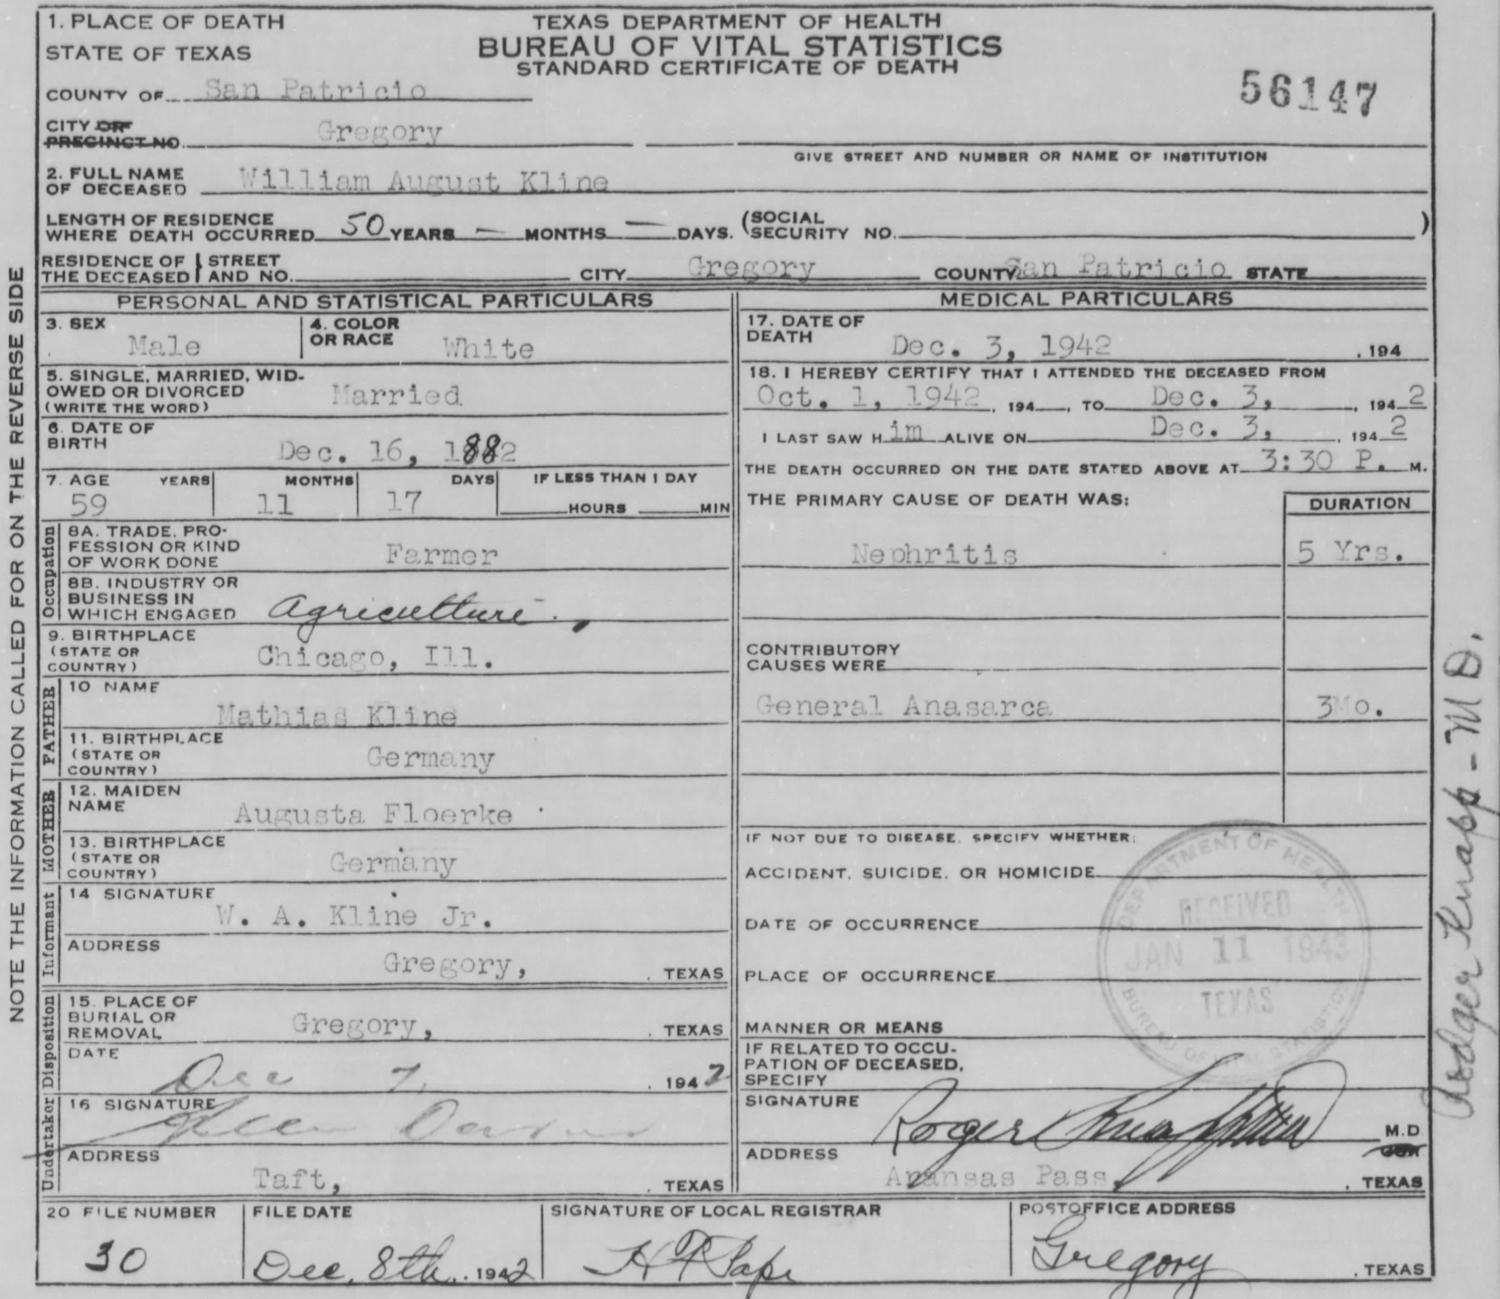 1. PLACE OF DEATH
STATE OF TEXAS
TEXAS DEPARTMENT OF HEALTH
BUREAU OF VITAL STATISTICS
STANDARD CERTIFICATE OF DEATH
56147
COUNTY OF San Patricio
CITY OR
PRECINCT NO. Gregory
GIVE STREET AND NUMBER OR NAME OF INSTITUTION
2. FULL NAME
OF DECEASED William August Kline
LENGTH OF RESIDENCE
WHERE DEATH OCCURRED 50 YEARS — MONTHS — DAYS. (SOCIAL SECURITY NO. )
RESIDENCE OF THE DECEASED STREET AND NO. CITY Gregory COUNTY San Patricio STATE
PERSONAL AND STATISTICAL PARTICULARS
3. SEX Male
4. COLOR OR RACE White
5. SINGLE, MARRIED, WID-
OWED OR DIVORCED
(WRITE THE WORD) Married
6. DATE OF
BIRTH Dec. 16, 1882
7. AGE YEARS MONTHS DAYS IF LESS THAN 1 DAY
59 11 17 HOURS MIN
Occupation
8A. TRADE, PRO-
FESSION OR KIND
OF WORK DONE Farmer
8B. INDUSTRY OR
BUSINESS IN
WHICH ENGAGED Agriculture
9. BIRTHPLACE
(STATE OR
COUNTRY) Chicago, Ill.
FATHER
10 NAME
Mathias Kline
11. BIRTHPLACE
(STATE OR
COUNTRY) Germany
MOTHER
12. MAIDEN
NAME Augusta Floerke
13. BIRTHPLACE
(STATE OR
COUNTRY) Germany
Informant
14 SIGNATURE
W. A. Kline Jr.
ADDRESS
Gregory, , TEXAS
Disposition
15. PLACE OF
BURIAL OR
REMOVAL Gregory, , TEXAS
DATE
Dec 7, , 1942
Undertaker
16 SIGNATURE
ADDRESS
Taft, , TEXAS
MEDICAL PARTICULARS
17. DATE OF
DEATH Dec. 3, 1942 , 194
18. I HEREBY CERTIFY THAT I ATTENDED THE DECEASED FROM
Oct. 1, 1942 , 194 , TO Dec. 3, , 194 2
I LAST SAW H im ALIVE ON Dec. 3, , 194 2
THE DEATH OCCURRED ON THE DATE STATED ABOVE AT 3:30 P. M.
THE PRIMARY CAUSE OF DEATH WAS: DURATION
Nephritis 5 Yrs.
CONTRIBUTORY
CAUSES WERE
General Anasarca 3Mo.
IF NOT DUE TO DISEASE, SPECIFY WHETHER:
ACCIDENT, SUICIDE, OR HOMICIDE
DATE OF OCCURRENCE
PLACE OF OCCURRENCE
MANNER OR MEANS
IF RELATED TO OCCU-
PATION OF DECEASED,
SPECIFY
DEPARTMENT OF HEALTH
RECEIVED
JAN 11 1943
TEXAS
BUREAU OF VITAL STATISTICS
SIGNATURE Roger Knapp M.D.
ADDRESS
Aransas Pass, , TEXAS
20 FILE NUMBER
30
FILE DATE
Dec. 8th, , 1942
SIGNATURE OF LOCAL REGISTRAR
POSTOFFICE ADDRESS
Gregory , TEXAS
NOTE THE INFORMATION CALLED FOR ON THE REVERSE SIDE
Rodger Knapp - M D.